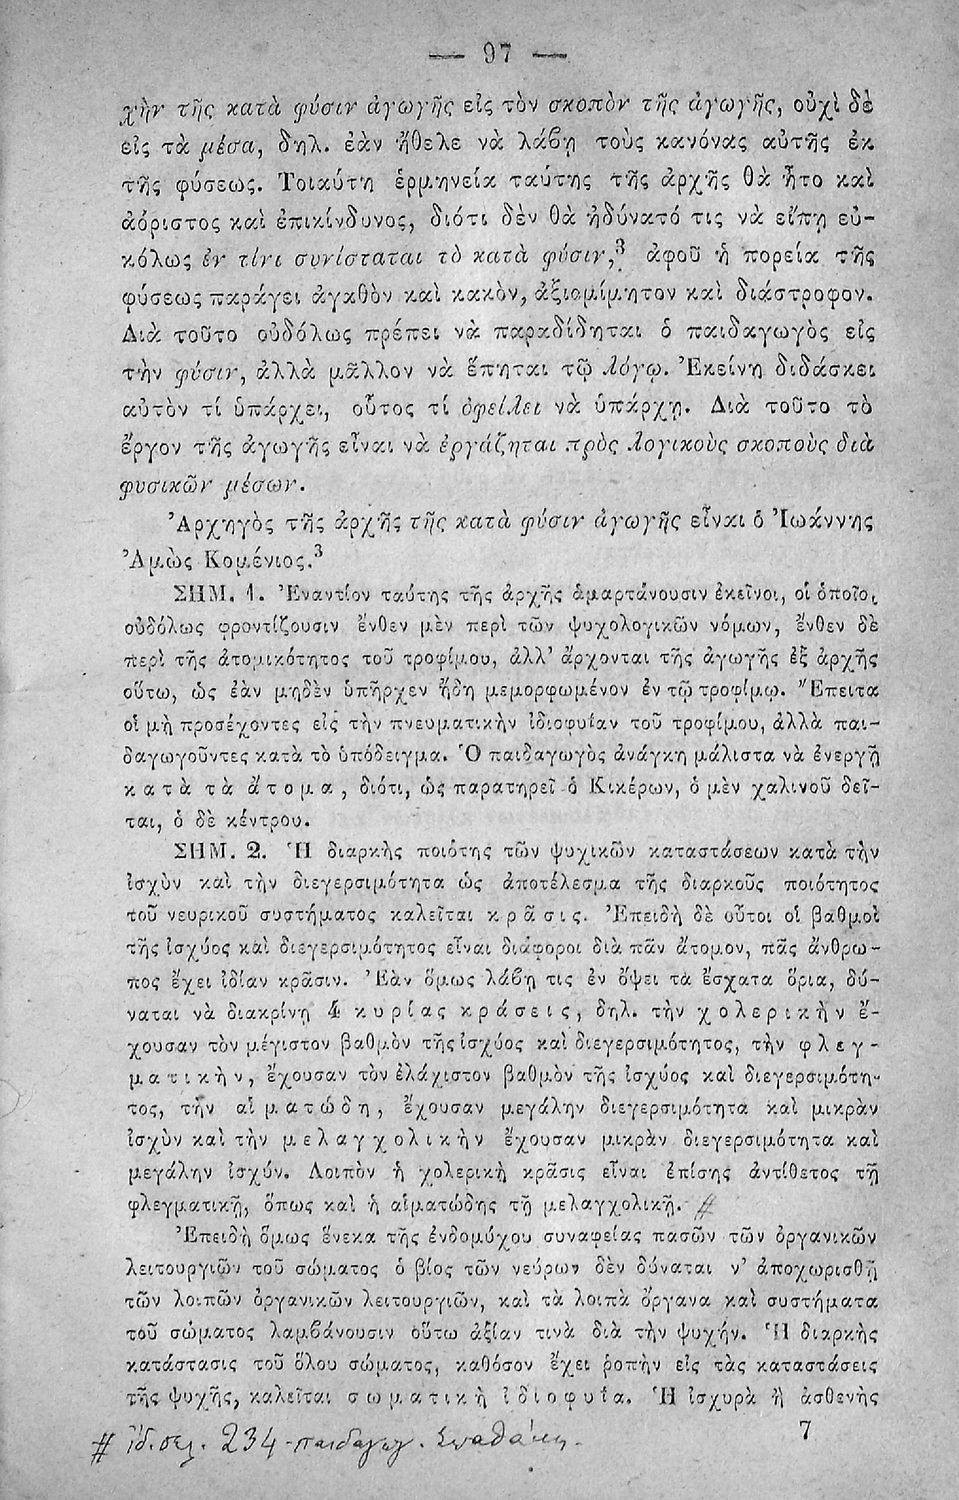 — 97 —
χὴν τῆς κατὰ φύσιν ἀγωγῆς εἰς τὸν σκοπὸν τῆς ἀγωγῆς, οὐχὶ δὲ
εἰς τὰ μέσα, δηλ. ἐὰν ἤθελε νὰ λάβῃ τοὺς κανόνας αὐτῆς ἐκ
τῆς φύσεως. Τοιαύτη ἑρμηνεία ταύτης τῆς ἀρχῆς θὰ ἦτο καὶ
ἀόριστος καὶ ἐπικίνδυνος, διότι δὲν θὰ ἠδύνατό τις νὰ εἴπῃ εὐ-
κόλως ἐν τίνι συνίσταται τὸ κατὰ φύσιν,³ ἀφοῦ ἡ πορεία τῆς
φύσεως παράγει ἀγαθὸν καὶ κακὸν, ἀξιομίμητον καὶ διάστροφον.
Διὰ τοῦτο οὐδόλως πρέπει νὰ παραδίδηται ὁ παιδαγωγὸς εἰς
τὴν φύσιν, ἀλλὰ μᾶλλον νὰ ἕπηται τῷ λόγῳ. Ἐκείνη διδάσκει
αὐτὸν τί ὑπάρχει, οὗτος τί ὀφείλει νὰ ὑπάρχῃ. Διὰ τοῦτο τὸ
ἔργον τῆς ἀγωγῆς εἶναι νὰ ἐργάζηται πρὸς λογικοὺς σκοποὺς διὰ
φυσικῶν μέσων.
Ἀρχηγὸς τῆς ἀρχῆς τῆς κατὰ φύσιν ἀγωγῆς εἶναι ὁ Ἰωάννης
Ἀμὼς Κομένιος.³
ΣΗΜ. 1. Ἐναντίον ταύτης τῆς ἀρχῆς ἁμαρτάνουσιν ἐκεῖνοι, οἱ ὁποῖοι
οὐδόλως φροντίζουσιν ἔνθεν μὲν περὶ τῶν ψυχολογικῶν νόμων, ἔνθεν δὲ
περὶ τῆς ἀτομικότητος τοῦ τροφίμου, ἀλλ' ἄρχονται τῆς ἀγωγῆς ἐξ ἀρχῆς
οὕτω, ὡς ἐὰν μηδὲν ὑπῆρχεν ἤδη μεμορφωμένον ἐν τῷ τροφίμῳ. Ἔπειτα
οἱ μὴ προσέχοντες εἰς τὴν πνευματικὴν ἰδιοφυΐαν τοῦ τροφίμου, ἀλλὰ παι-
δαγωγοῦντες κατὰ τὸ ὑπόδειγμα. Ὁ παιδαγωγὸς ἀνάγκη μάλιστα νὰ ἐνεργῇ
κατὰ τὰ ἄτομα, διότι, ὡς παρατηρεῖ ὁ Κικέρων, ὁ μὲν χαλινοῦ δεῖ-
ται, ὁ δὲ κέντρου.
ΣΗΜ. 2. Ἡ διαρκὴς ποιότης τῶν ψυχικῶν καταστάσεων κατὰ τὴν
ἰσχὺν καὶ τὴν διεγερσιμότητα ὡς ἀποτέλεσμα τῆς διαρκοῦς ποιότητος
τοῦ νευρικοῦ συστήματος καλεῖται κρᾶσις. Ἐπειδὴ δὲ οὗτοι οἱ βαθμοὶ
τῆς ἰσχύος καὶ διεγερσιμότητος εἶναι διάφοροι διὰ πᾶν ἄτομον, πᾶς ἄνθρω-
πος ἔχει ἰδίαν κρᾶσιν. Ἐὰν ὅμως λάβῃ τις ἐν ὄψει τὰ ἔσχατα ὅρια, δύ-
ναται νὰ διακρίνῃ 4 κυρίας κράσεις, δηλ. τὴν χολερικὴν ἔ-
χουσαν τὸν μέγιστον βαθμὸν τῆς ἰσχύος καὶ διεγερσιμότητος, τὴν φλεγ-
ματικὴν, ἔχουσαν τὸν ἐλάχιστον βαθμὸν τῆς ἰσχύος καὶ διεγερσιμότη-
τος, τὴν αἱματώδη, ἔχουσαν μεγάλην διεγερσιμότητα καὶ μικρὰν
ἰσχὺν καὶ τὴν μελαγχολικὴν ἔχουσαν μικρὰν διεγερσιμότητα καὶ
μεγάλην ἰσχύν. Λοιπὸν ἡ χολερικὴ κρᾶσις εἶναι ἐπίσης ἀντίθετος τῇ
φλεγματικῇ, ὅπως καὶ ἡ αἱματώδης τῇ μελαγχολικῇ. #
Ἐπειδὴ ὅμως ἕνεκα τῆς ἐνδομύχου συναφείας πασῶν τῶν ὀργανικῶν
λειτουργιῶν τοῦ σώματος ὁ βίος τῶν νεύρων δὲν δύναται ν' ἀποχωρισθῇ
τῶν λοιπῶν ὀργανικῶν λειτουργιῶν, καὶ τὰ λοιπὰ ὄργανα καὶ συστήματα
τοῦ σώματος λαμβάνουσιν οὕτω ἀξίαν τινὰ διὰ τὴν ψυχήν. Ἡ διαρκὴς
κατάστασις τοῦ ὅλου σώματος, καθόσον ἔχει ῥοπὴν εἰς τὰς καταστάσεις
τῆς ψυχῆς, καλεῖται σωματικὴ ἰδιοφυΐα. Ἡ ἰσχυρὰ ἢ ἀσθενὴς
7
# ἴδ. σελ. 234 - παιδαγωγ. Σπαθάκη.